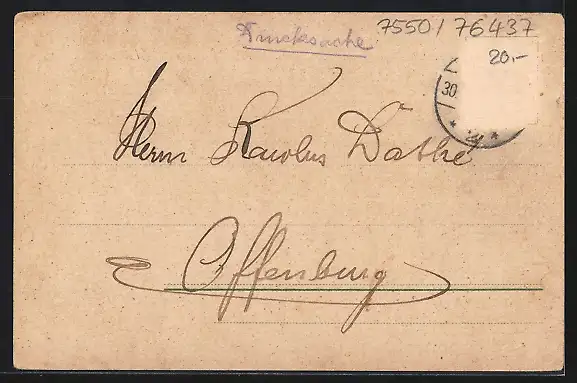 Drucksache
75501/76437
20,-
30.
Herrn Karolus Däthe
Offenburg